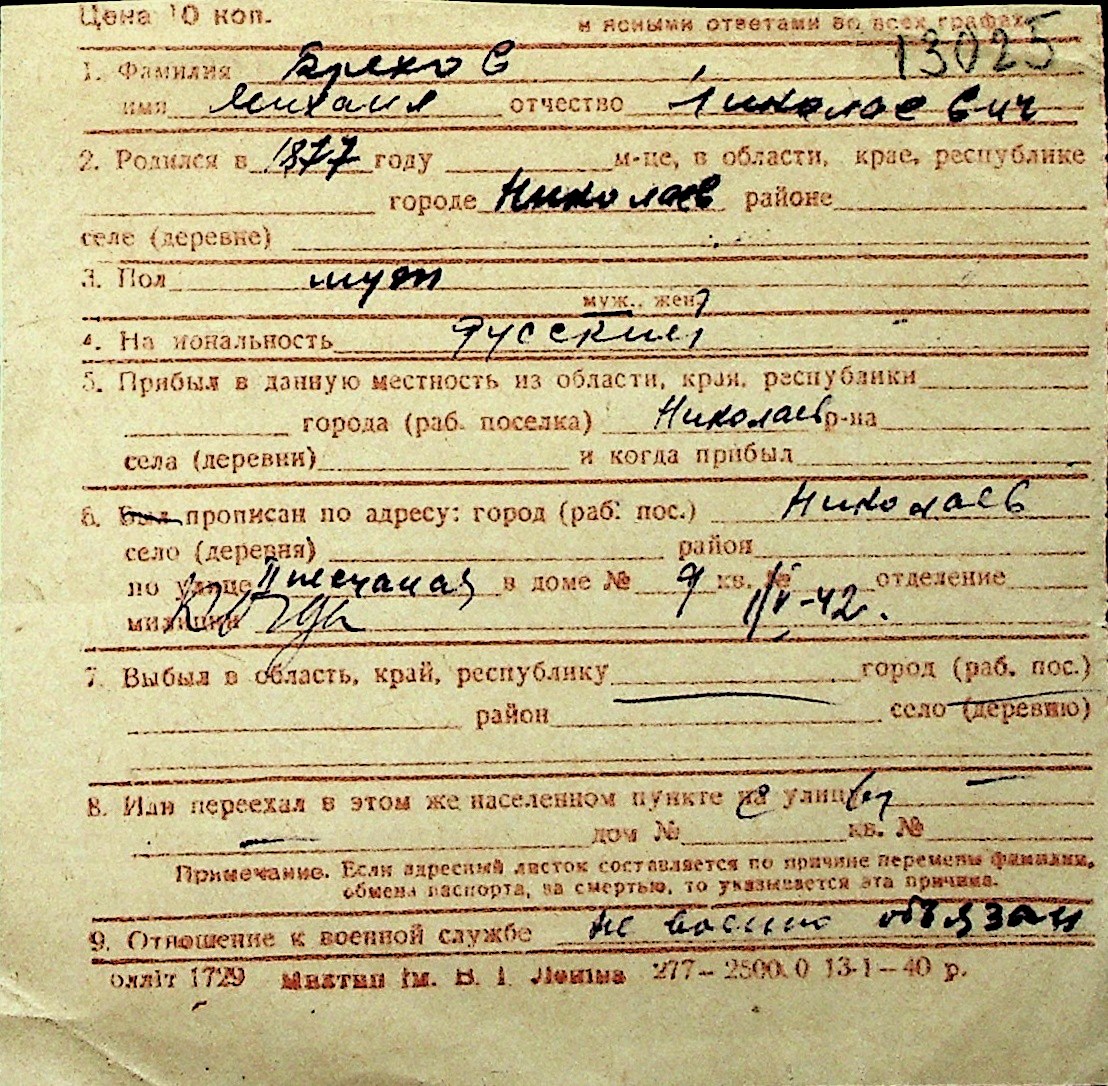 Цена 10 коп. и ясными ответами во всех графах
13025
1. Фамилия Бреков
имя Михаил отчество Николаевич
2. Родился в 1877 году м-це, в области, крае, республике
городе Николаев районе
селе (деревне)
3. Пол муж
муж., жен
4. На иональность Русский
5. Прибыл в данную местность из области, края, республики
города (раб. поселка) Николаев р-на
села (деревни) и когда прибыл
6. Был прописан по адресу: город (раб. пос.) Николаев
село (деревня) район
по улице II песчаная в доме № 9 кв. № отделение
милиции 1/V-42.
7. Выбыл в область, край, республику город (раб. пос.)
район село (деревню)
8. Или переехал в этом же населенном пункте на улицу
дом № кв. №
Примечание. Если адресный листок составляется по причине перемены фамилии,
обмена паспорта, за смертью, то указывается эта причина.
9. Отношение к военной службе не военно обязан
оллiт 1729 Миктип iм. В. I. Ленiна 277—2500.0 13-1—40 р.